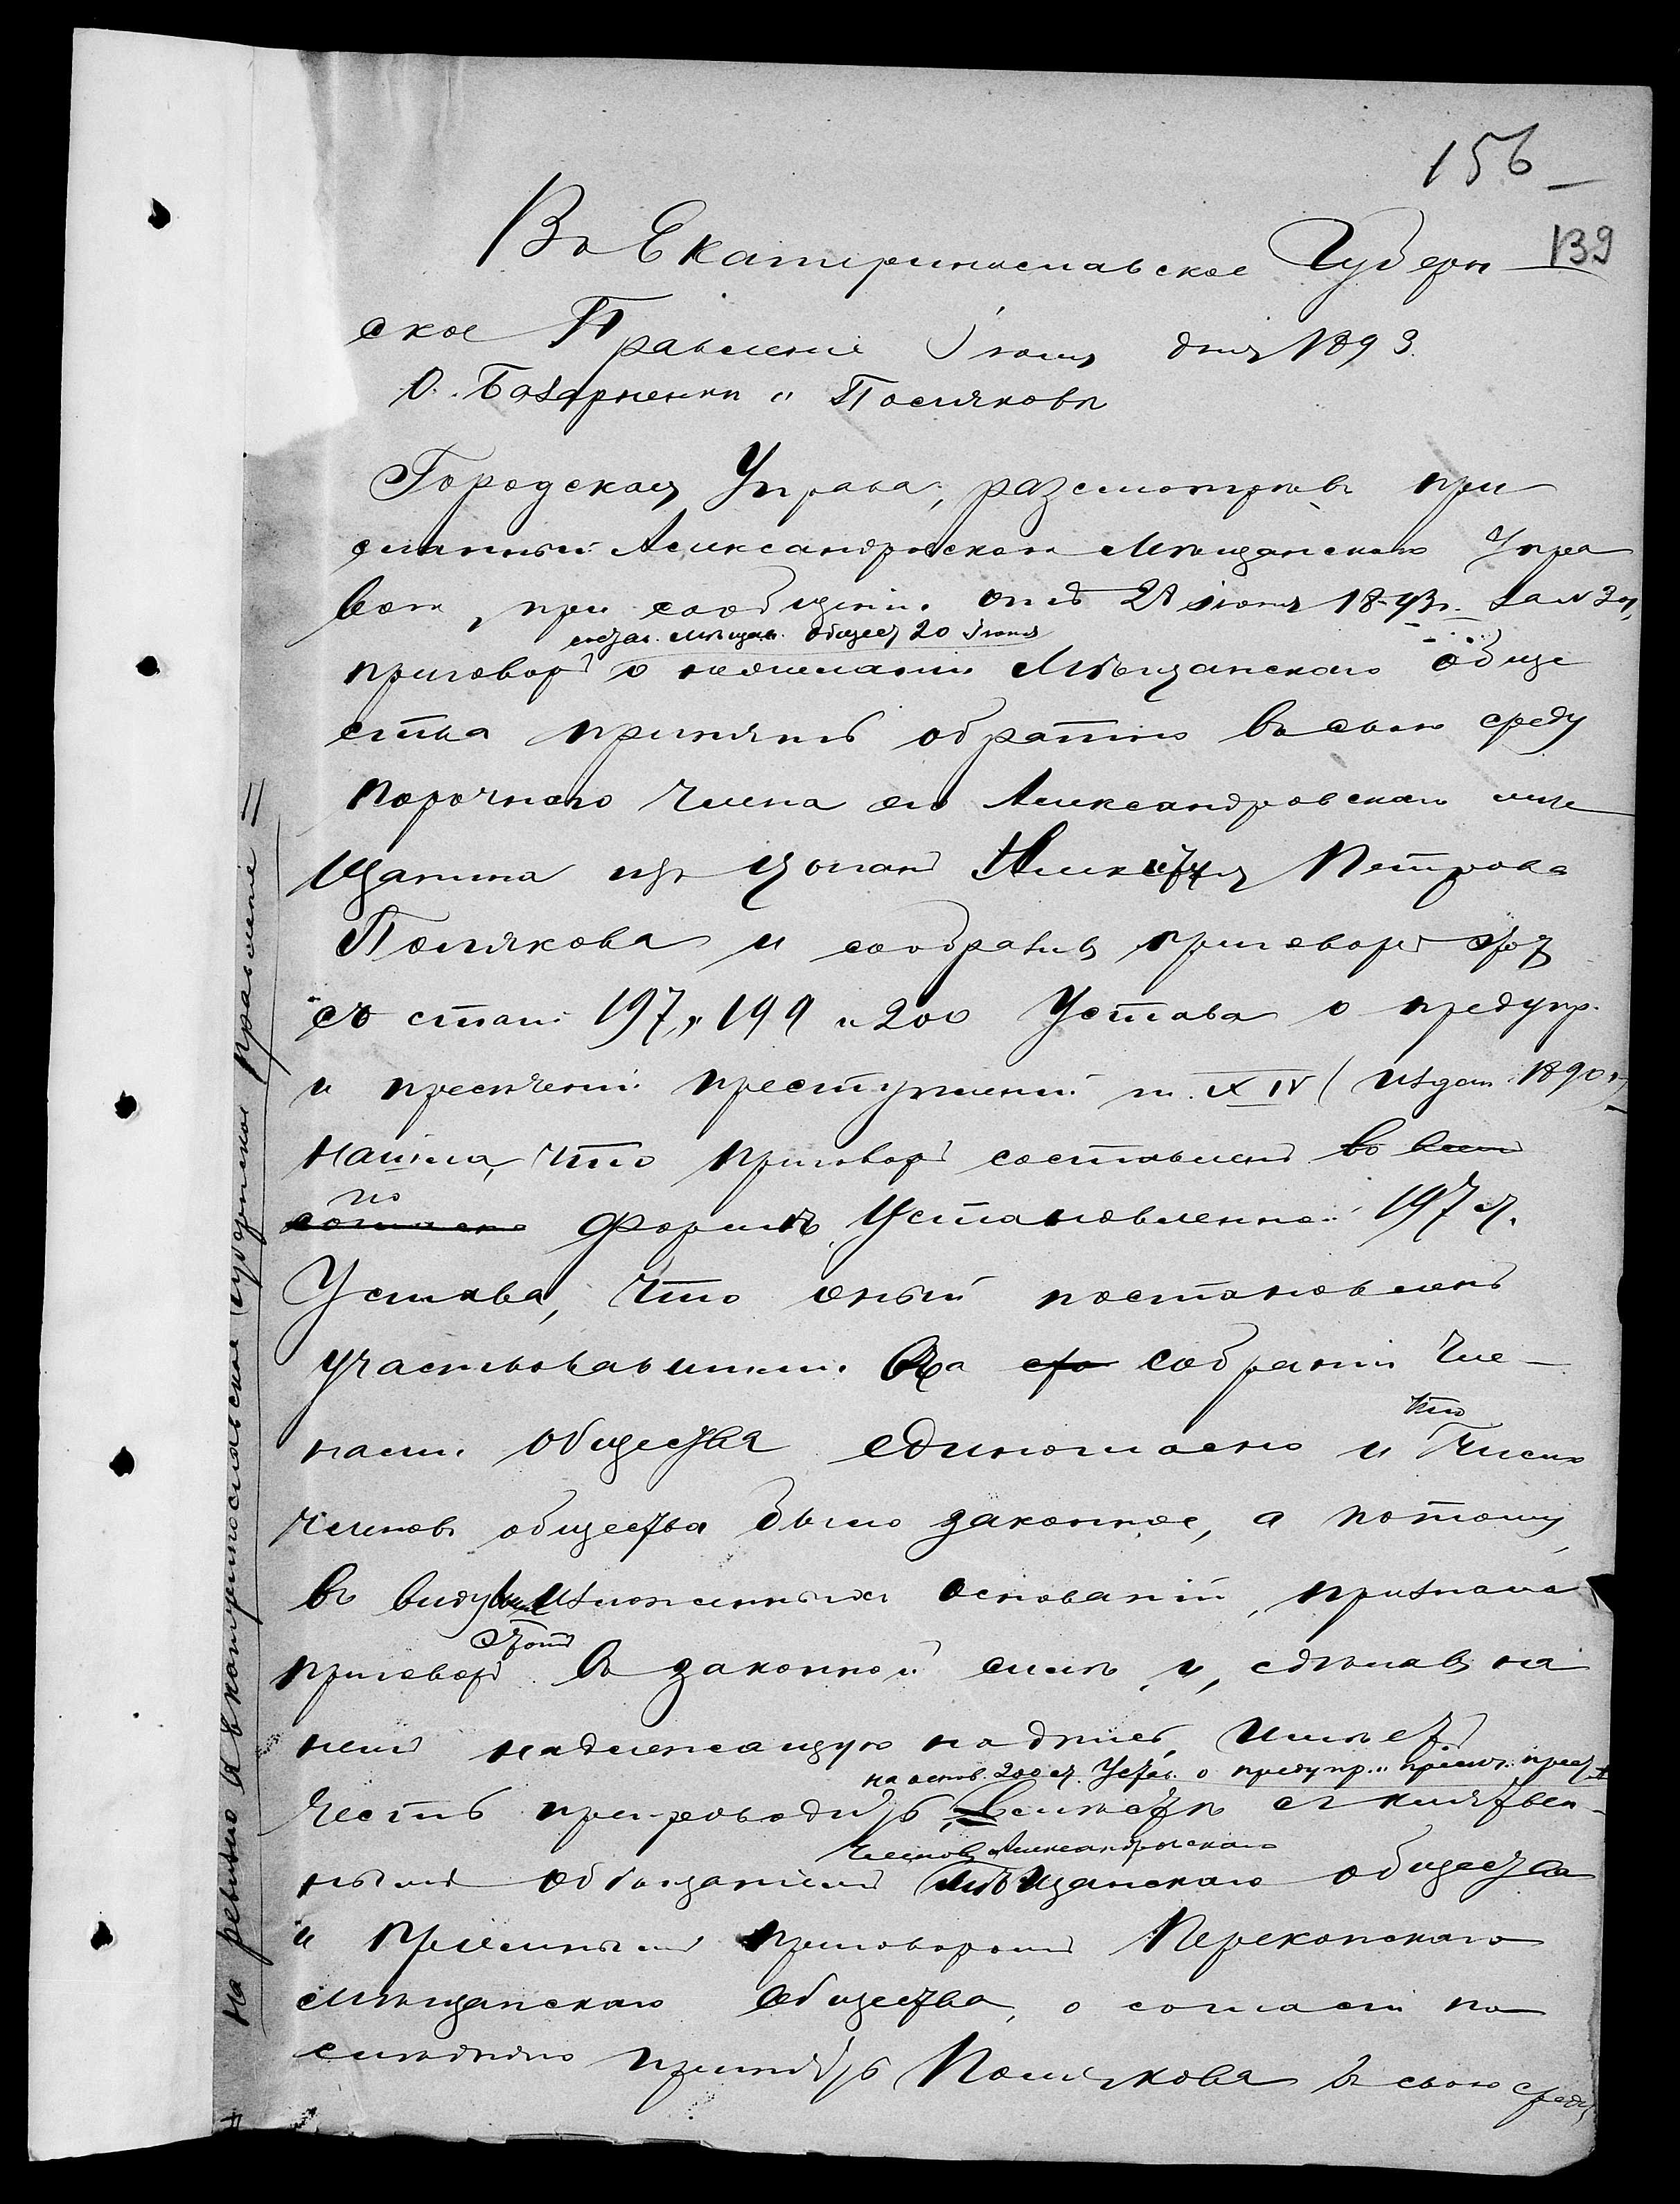 156
139
Въ Екатеринославское Губерн
ское Правленіе Іюня дня 1893.
О. Базарненки и Поляковы
Городская Управа, разсмотрѣвъ при
сланный Александровскою Мѣщанскою Упра
вою, при сообщеніи отъ 21 іюня 1893 г. за №
мѣщан. общес 20 Іюня
приговоръ о нежеланіи Мѣщанскаго обще
ства принять обратно въ свою среду
порочнаго члена его Александровскаго мѣ
щанина изъ цыганъ Алексѣя Петрова
Полякова и сообразивъ приговоръ этотъ
съ стат. 197, 199 и 200 Устава о предупр.
и пресѣченіи преступленій т. XIV (издан. 1890 г.)
нашла, что приговоръ составленъ въ
по
согласно формѣ, установленной 197 ст.
Устава, что оный постановленъ
участвовавшими на собраніи чле-
нами общества единогласно и
что
число
членовъ общества было законное, а потому,
въ виду изложенныхъ основаній, признала
этотъ
приговоръ въ законной силѣ и, сдѣлавъ на
немъ надлежащую надпись, имѣетъ
на основ. 200 ст. Устав. о предупр. и пресѣч. прест
честь препроводить, вмѣстѣ съ клятвен-
членовъ Александровскаго
нымъ обѣщаніемъ мѣщанскаго общества
и пріемнымъ приговоромъ Перекопскаго
мѣщанскаго общества, о согласіи по
слѣдняго принять Полякова въ свою среду
на ревизію въ Екатеринославское Губернское Правленіе =